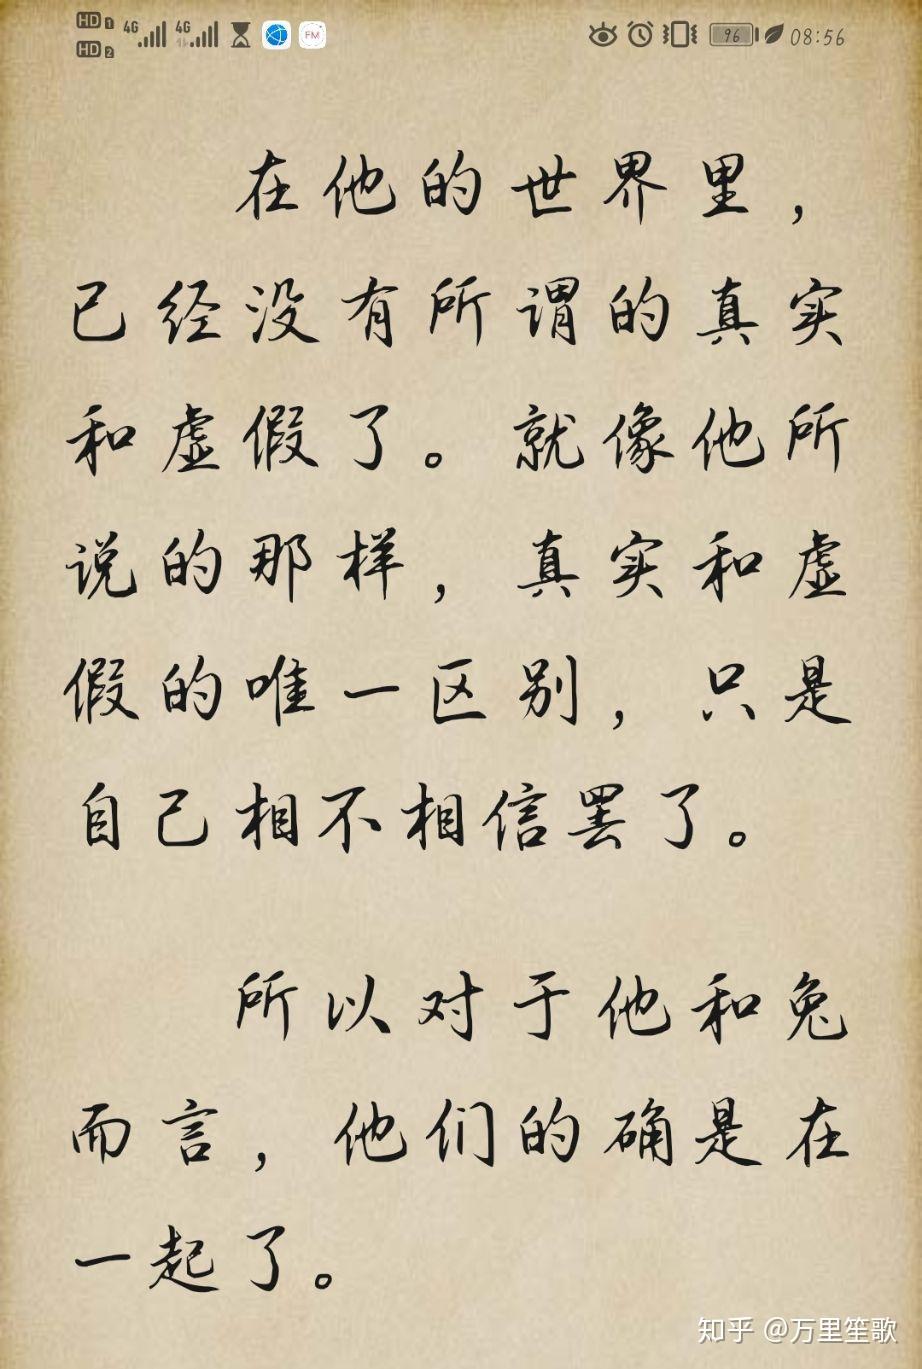 HD 1 4G 4G FM 96 08:56
HD 2
在他的世界里，
已经没有所谓的真实
和虚假了。就像他所
说的那样，真实和虚
假的唯一区别，只是
自己相不相信罢了。
所以对于他和兔
而言，他们的确是在
一起了。
知乎 @万里笙歌